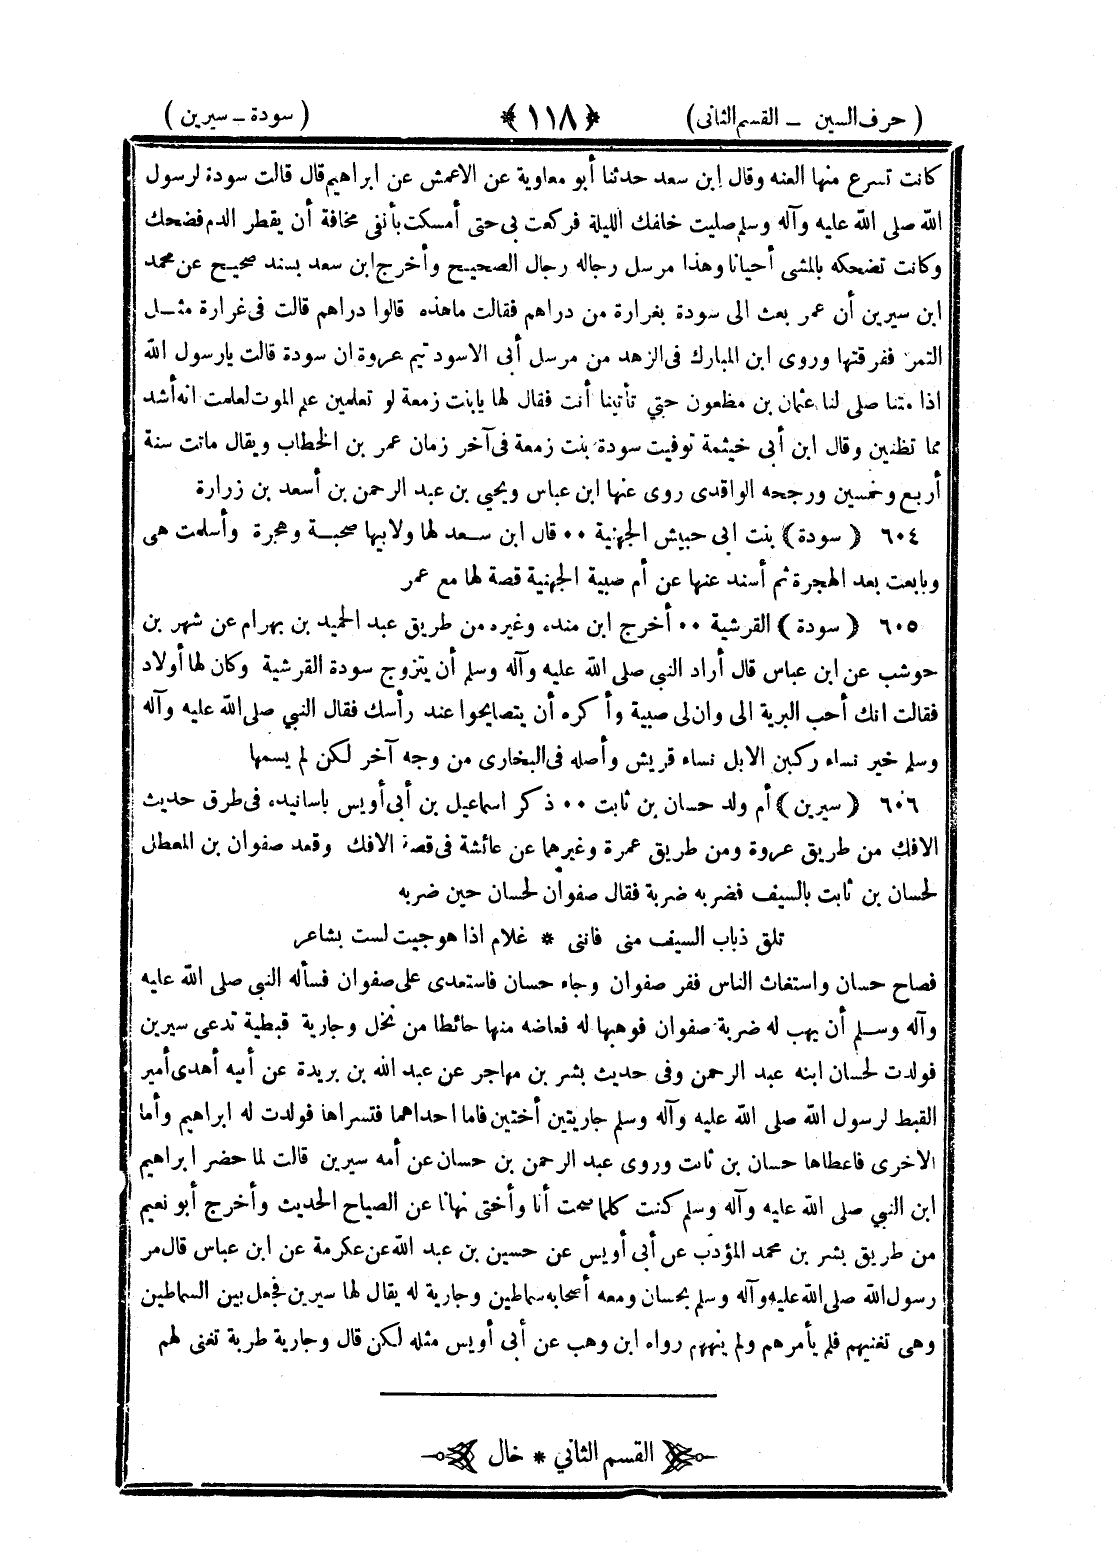 ( حرف السين – القسم الثانى ) ﴿ ١١٨ ﴾ ( سودة – سيرين )
كانت تسرع منها العنه وقال ابن سعد حدثنا أبو معاوية عن الاعمش عن ابراهيم قال قالت سودة لرسول
الله صلى الله عليه وآله وسلم صليت خلفك الليلة فركعت بى حتى أمسكت بأنفى مخافة أن يقطر الدم فضحك
وكانت تضحكه بالمشى أحيانا وهذا مرسل رجاله رجال الصحيح وأخرج ابن سعد بسند صحيح عن محمد
ابن سيرين أن عمر بعث الى سودة بغرارة من دراهم فقالت ما هذه قالوا دراهم قالت فى غرارة مثل
التمر ففرقتها وروى ابن المبارك فى الزهد من مرسل أبى الاسود تيم عروة ان سودة قالت يارسول الله
اذا متنا صلى لنا عثمان بن مظعون حتى تأتينا أنت فقال لها يابنت زمعة لو تعلمين علم الموت لعلمت انه أشد
مما تظنين وقال ابن أبى خيثمة توفيت سودة بنت زمعة فى آخر زمان عمر بن الخطاب ويقال ماتت سنة
أربع وخمسين ورجحه الواقدى روى عنها ابن عباس ويحيى بن عبد الرحمن بن أسعد بن زرارة
٦٠٤ ﴿ سودة ﴾ بنت ابى حبيش الجهنية ٠٠ قال ابن سعد لها ولابيها صحبة وهجرة وأسلمت هى
وبايعت بعد الهجرة ثم أسند عنها عن أم صبية الجهنية قصة لها مع عمر
٦٠٥ ﴿ سودة ﴾ القرشية ٠٠ أخرج ابن منده وغيره من طريق عبد الحميد بن بهرام عن شهر بن
حوشب عن ابن عباس قال أراد النبى صلى الله عليه وآله وسلم أن يتزوج سودة القرشية وكان لها أولاد
فقالت انك أحب البرية الى وان لى صبية وأكره أن يتصايحوا عند رأسك فقال النبي صلى الله عليه وآله
وسلم خير نساء ركبن الابل نساء قريش وأصله فى البخارى من وجه آخر لكن لم يسمها
٦٠٦ ﴿ سيرين ﴾ أم ولد حسان بن ثابت ٠٠ ذكر اسماعيل بن أبى أويس باسانيده فى طرق حديث
الافك من طريق عروة ومن طريق عمرة وغيرهما عن عائشة فى قصة الافك وقعد صفوان بن المعطل
لحسان بن ثابت بالسيف فضربه ضربة فقال صفوان لحسان حين ضربه
تلق ذباب السيف منى فاننى * غلام اذا هوجيت لست بشاعر
فصاح حسان واستغاث الناس ففر صفوان وجاء حسان فاستعدى على صفوان فسأله النبى صلى الله عليه
وآله وسلم أن يهب له ضربة صفوان فوهبها له فعاضه منها حائطا من نخل وجارية قبطية تدعى سيرين
فولدت لحسان ابنه عبد الرحمن وفى حديث بشر بن مهاجر عن عبد الله بن بريدة عن أبيه أهدى أمير
القبط لرسول الله صلى الله عليه وآله وسلم جاريتين أختين فاما احداهما فتسراها فولدت له ابراهيم وأما
الاخرى فاعطاها حسان بن ثابت وروى عبد الرحمن بن حسان عن أمه سيرين قالت لما حضر ابراهيم
ابن النبي صلى الله عليه وآله وسلم كنت كلما صحت أنا وأختى نهانا عن الصياح الحديث وأخرج أبو نعيم
من طريق بشر بن محمد المؤدب عن أبى أويس عن حسين بن عبد الله عن عكرمة عن ابن عباس قال مر
رسول الله صلى الله عليه وآله وسلم بحسان ومعه أصحابه سماطين وجارية له يقال لها سيرين فجعل بين السماطين
وهى تغنيهم فلم يأمرهم ولم ينههم رواه ابن وهب عن أبى أويس مثله لكن قال وجارية طربة تغنى لهم
القسم الثاني * خال